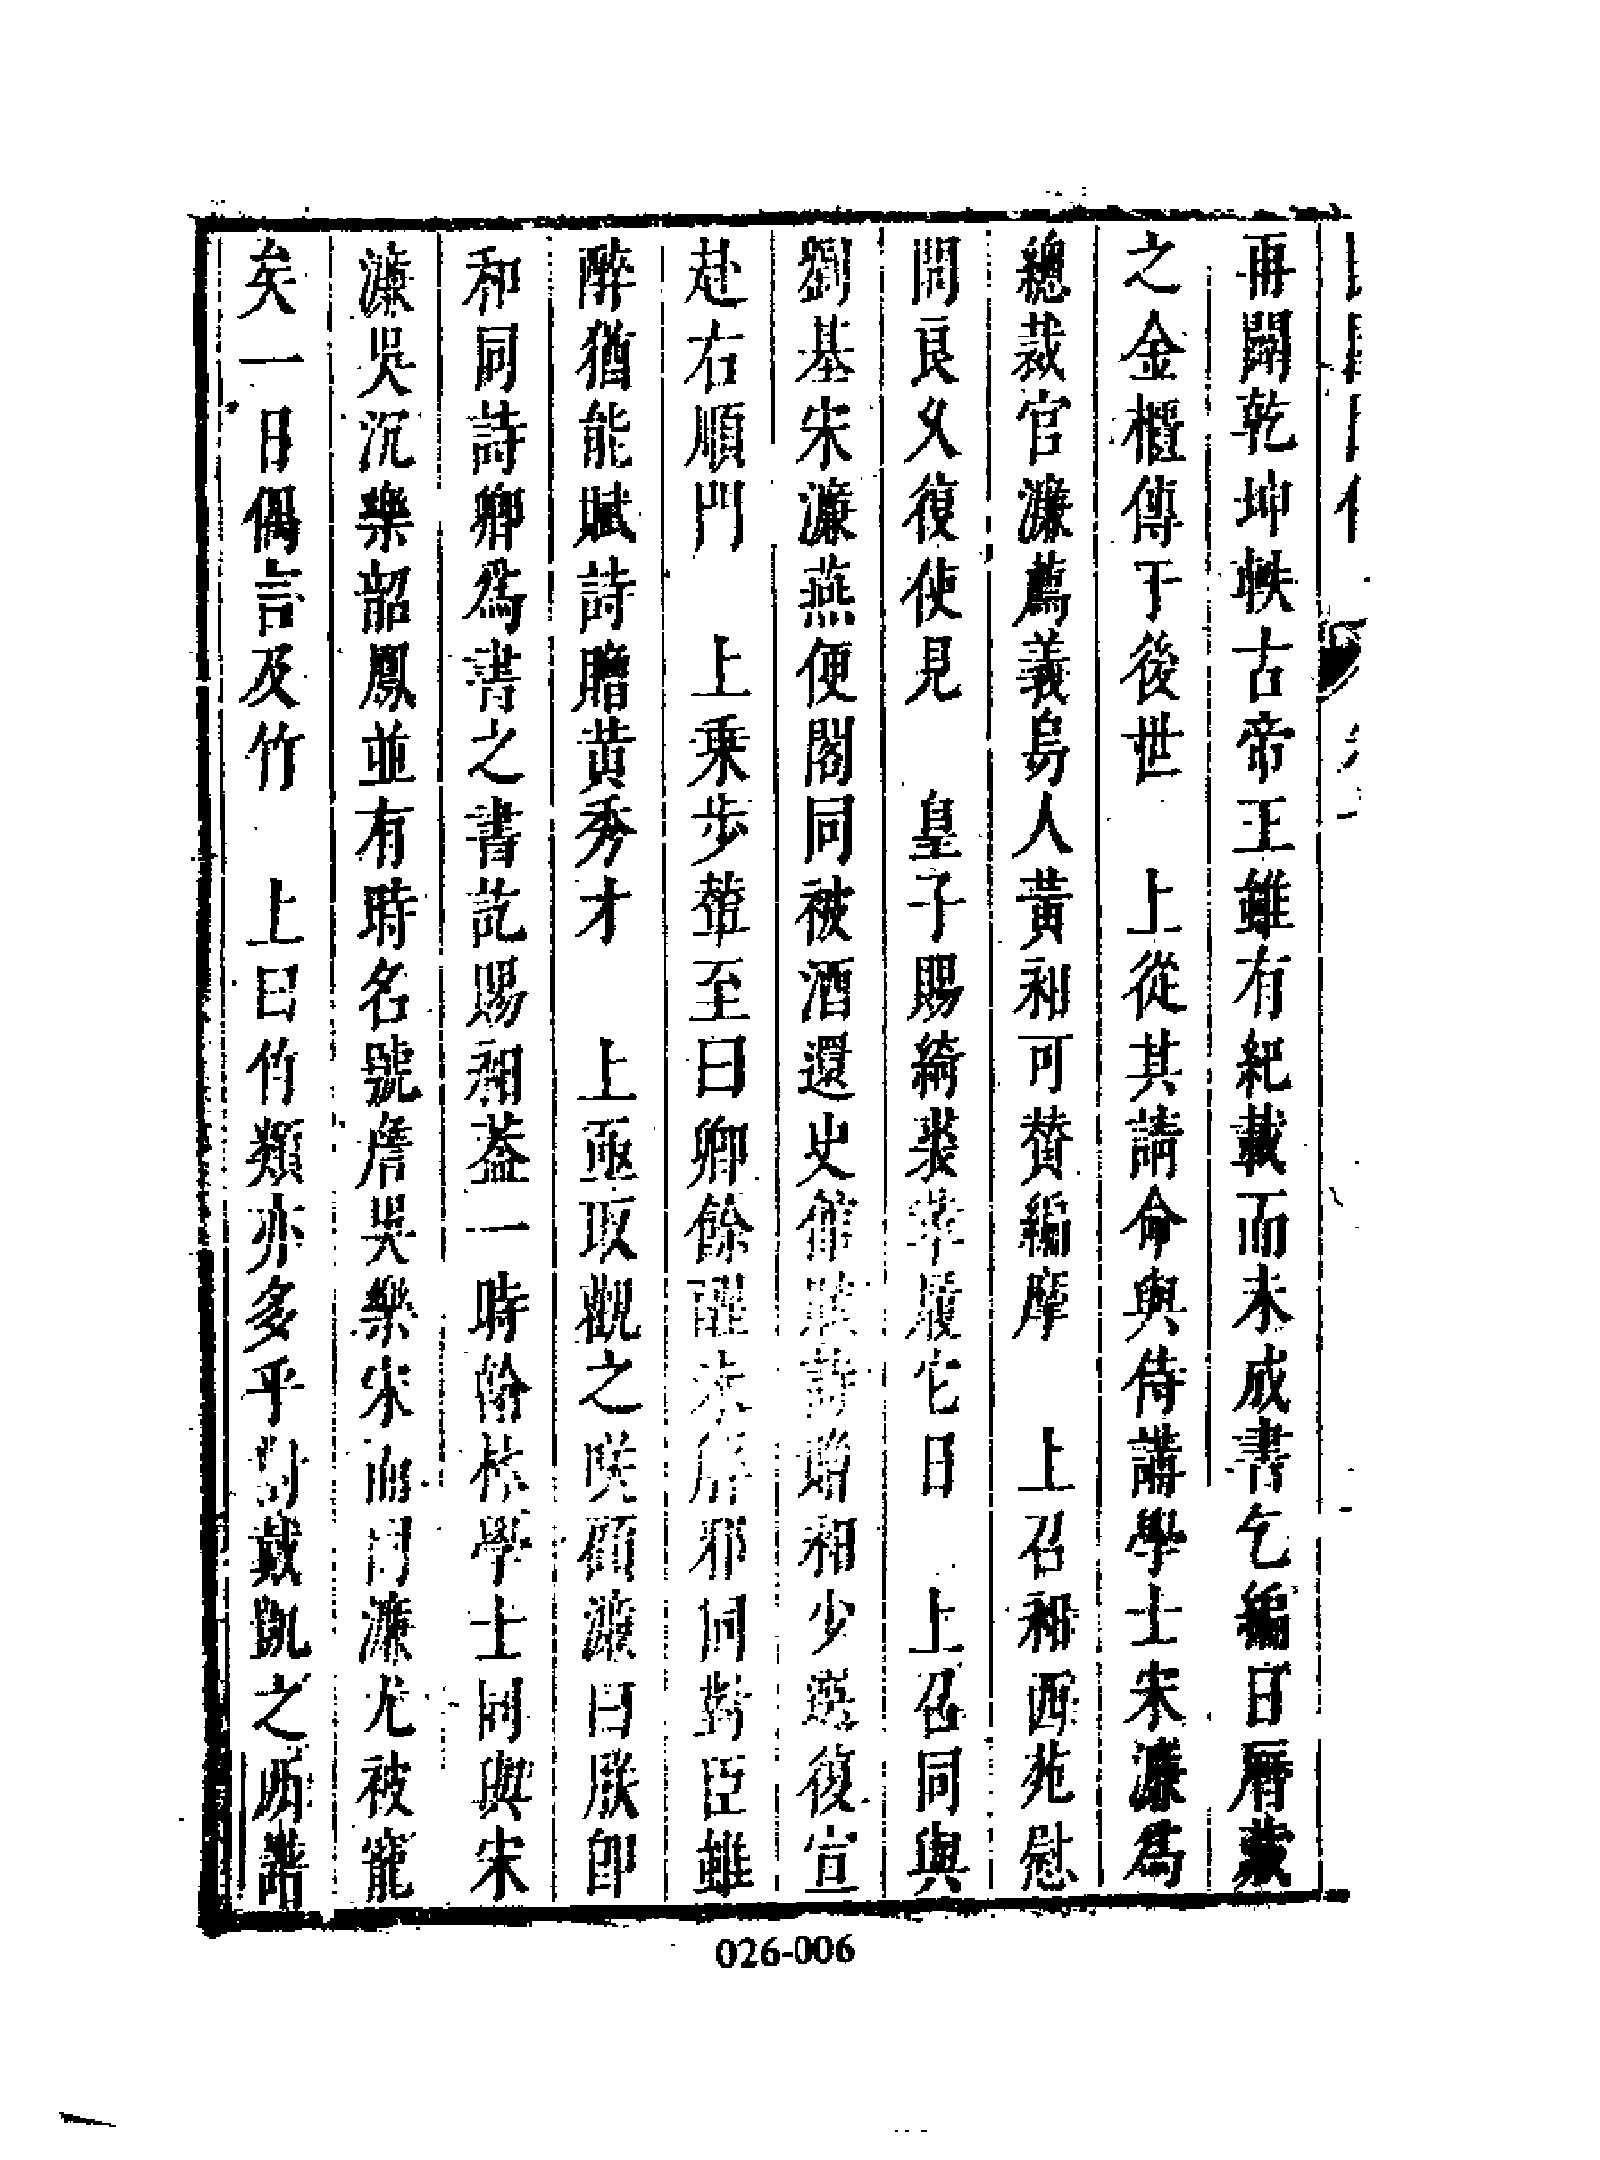 再闢乾坤軼古帝王雖有紀載而未成書乞編日曆藏
之金櫃傳于後世　上從其請命與侍講學士宋濂為
總裁官濂薦義烏人黃昶可賛編摩　上召昶西苑慰
問良乆復使見　皇子賜綺裘革履它日　上召同與
劉基宋濂燕便閣同被酒還史館賦詩贈昶少選復宣
赴右順門　上乘步輦至曰卿餘酲未解邪同對臣雖
醉猶能賦詩贈黃秀才　上亟取觀之咲顧濂曰朕卽
和同詩卿爲書之書訖賜昶葢一時翰林學士同與宋
濂吳沉樂韶鳳並有時名號詹吳樂宋而同濂尤被寵
矣一日偶言及竹　上曰竹類亦多乎對戴凱之所譜
026-006